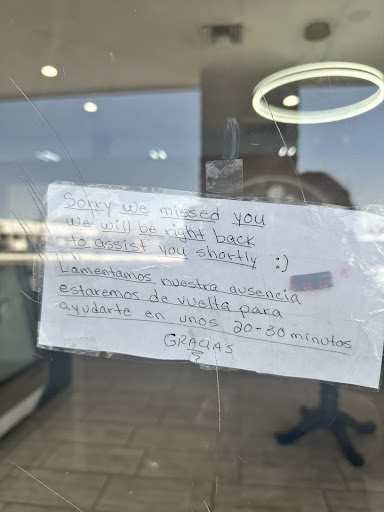 Sorry we missed you
we will be right back
to assist you shortly :)
Lamentamos nuestra ausencia
estaremos de vuelta para
ayudarte en unos 20-30 minutos
GRACIAS